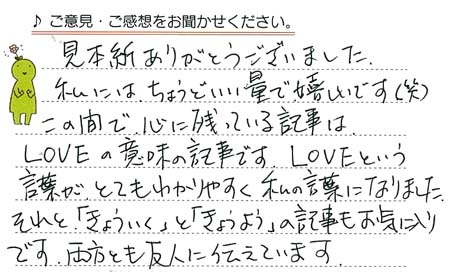 ♪ ご意見・ご感想をお聞かせください。
見本紙ありがとうございました.
私には、ちょうどいい量で嬉しいです(笑)
この間で、心に残っている記事は、
LOVEの意味の記事です. LOVEという
言葉が とてもわかりやすく 私の言葉になりました.
それと、「きょういく」と「きょうよう」の記事もお気に入り
です. 両方とも友人に伝えています.